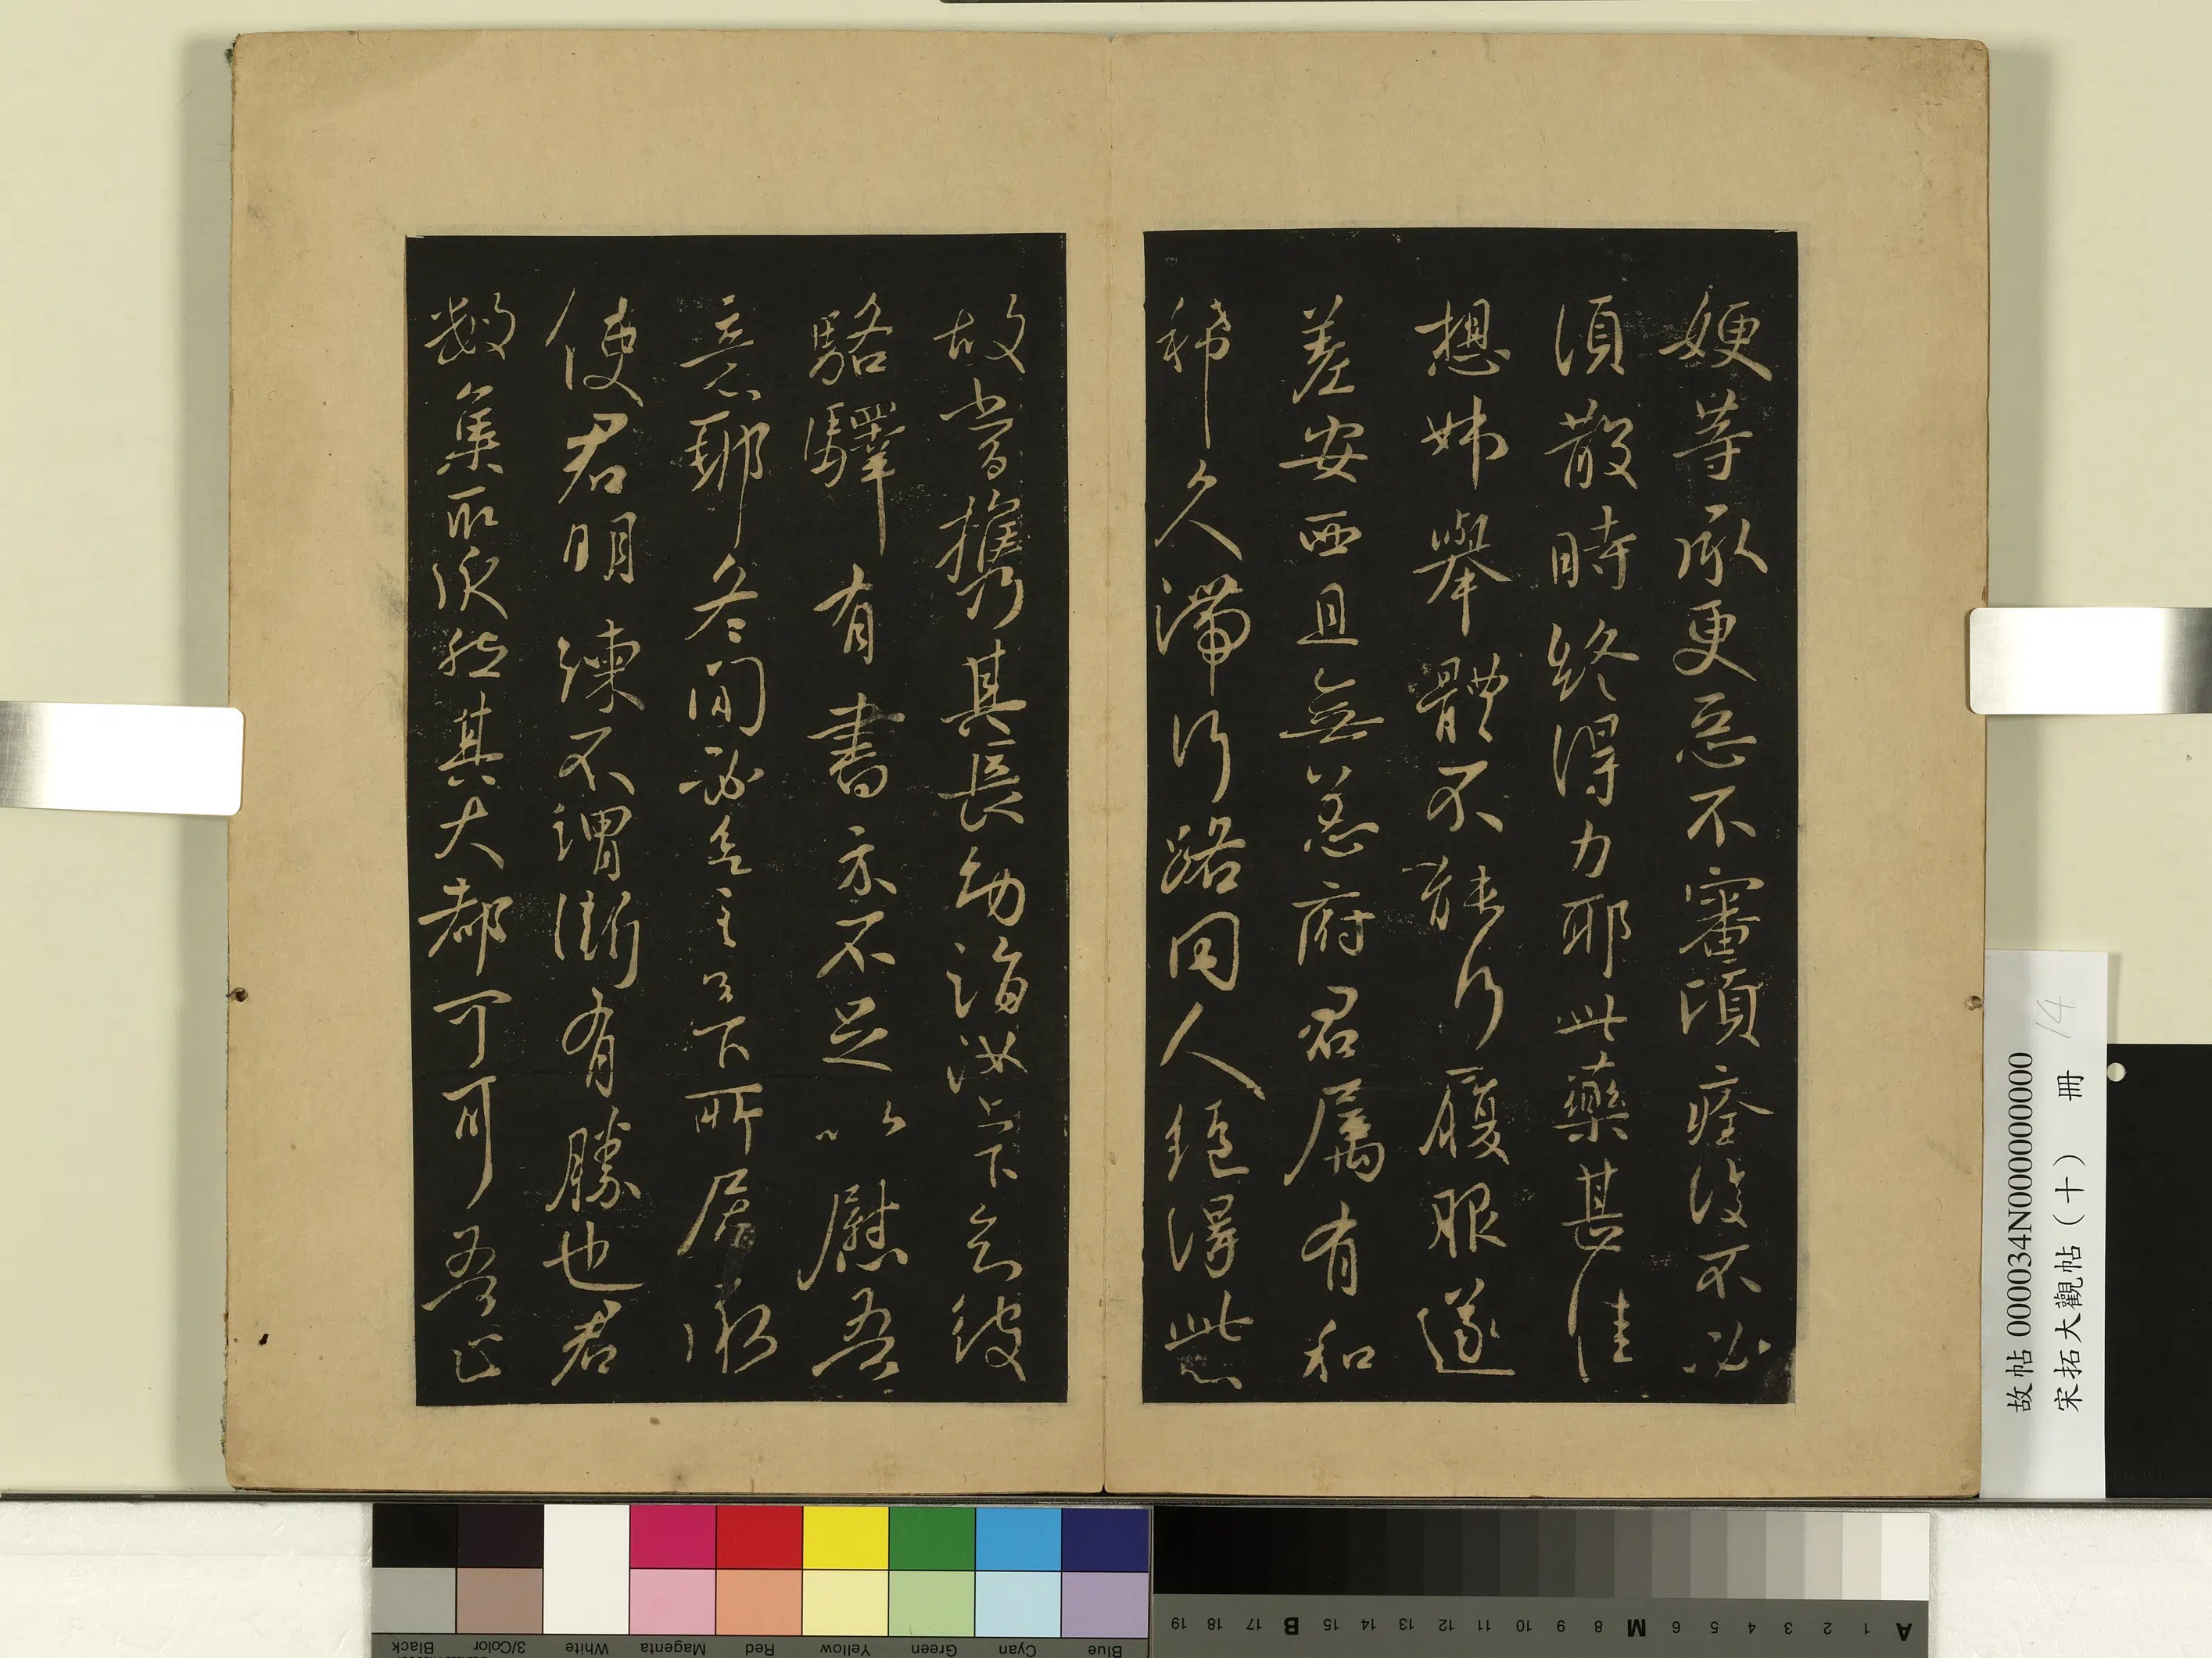 㛐等承更惡不審頃痊復不必
須散時終得力耶此藥甚佳
想姊舉體不能行履服遂
差安西且無恙府君屬有和
稀久滯行路同人絕得此
故當攜其長幼詣汝上下知彼
駱驛有書亦不足以慰吾
意耶冬間必至足下所屬
使君明練不謂漸有勝也君
數集聚欣然其大都可可吾
故帖 000034N000000000
宋拓大觀帖(十) 冊 14
Black 3/Color White Magenta Red Yellow Green Cyan Blue
19 18 17 B 15 14 13 12 11 10 9 8 M 6 5 4 3 2 1 A